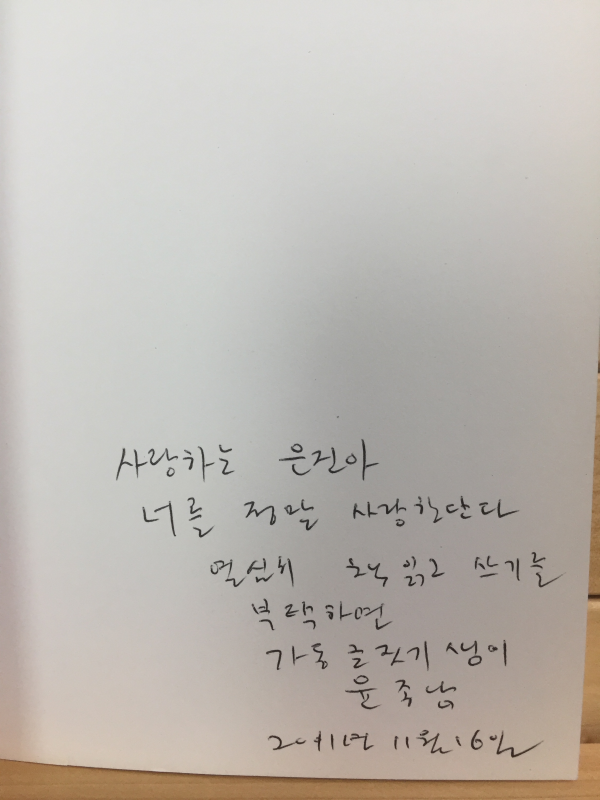 사랑하는 은진아
너를 정말 사랑한단다
열심히 읽고 쓰기를
부탁하면
가동 글짓기 샘이
윤
11월 16일